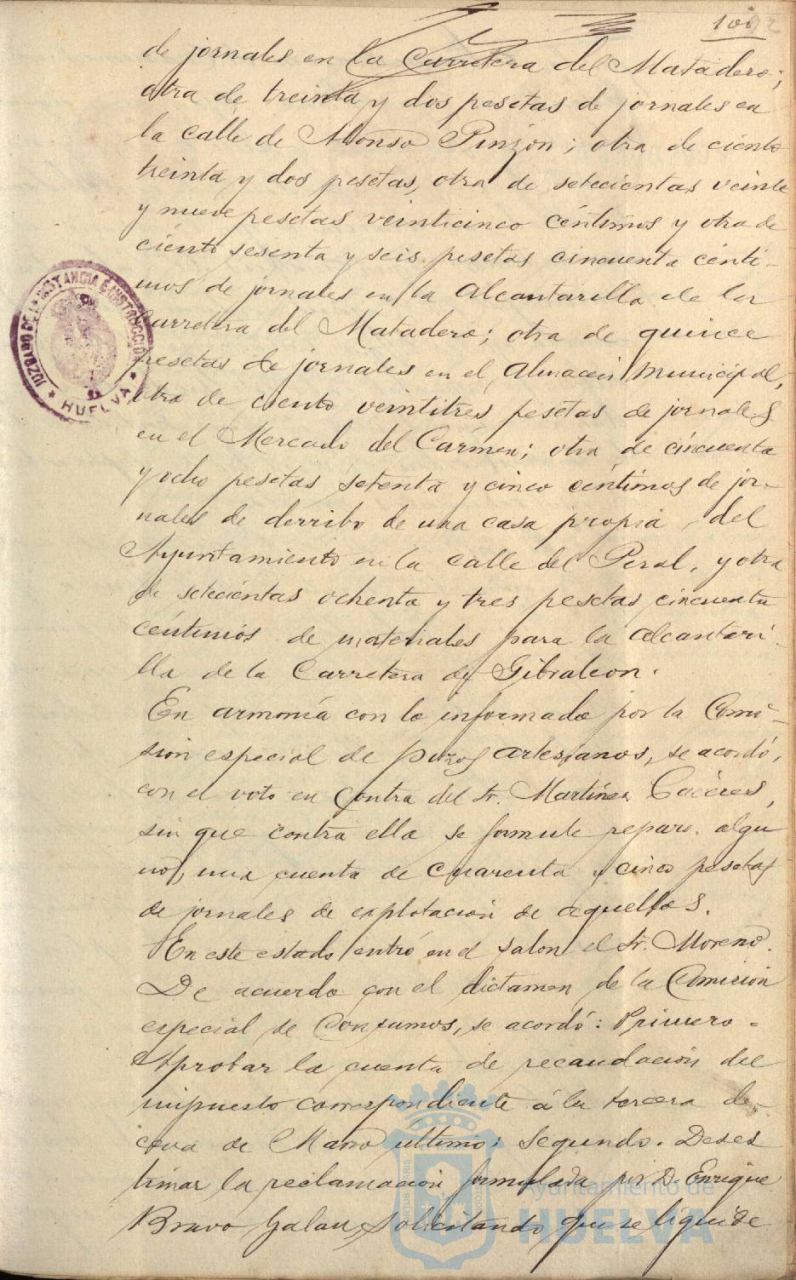 100
de jornales en la Carretera del Matadero;
otra de treinta y dos pesetas de jornales en
la calle de Alonso Pinzon; otra de ciento
treinta y dos pesetas, otra de setecientas veinte
y nueve pesetas veinticinco céntimos y otra de
ciento sesenta y seis pesetas cincuenta cénti-
mos de jornales en la Alcantarilla de la
Carretera del Matadero; otra de quince
pesetas de jornales en el Almacen Municipal,
otra de ciento veintitres pesetas de jornales
en el Mercado del Carmen; otra de cincuenta
y ocho pesetas setenta y cinco céntimos de jor-
nales de derribo de una casa propia del
Ayuntamiento en la calle del Peral, y otra
de setecientas ochenta y tres pesetas cincuenta
céntimos de materiales para la alcantari-
lla de la Carretera de Gibraleon.
En armonía con lo informado por la Comi-
sión especial de pozos artesianos, se acordó,
con el voto en contra del Sr. Martínez Cáceres,
sin que contra ella se formule reparo algu
no, una cuenta de cuarenta y cinco pesetas
de jornales de explotación de aquellos.
En este estado entró en el salon el Sr. Moreno.
De acuerdo con el dictamen de la Comisión
especial de Consumos, se acordó: Primero.
Aprobar la cuenta de recaudación del
impuesto correspondiente á la tercera de-
cena de Marzo último: Segundo. Deses
timar la reclamación formulada por D. Enrique
Bravo Galan, solicitando que se liquide
JUZGADO DE 1ª INSTANCIA E INSTRUCCION
* HUELVA *
Ayuntamiento de
HUELVA